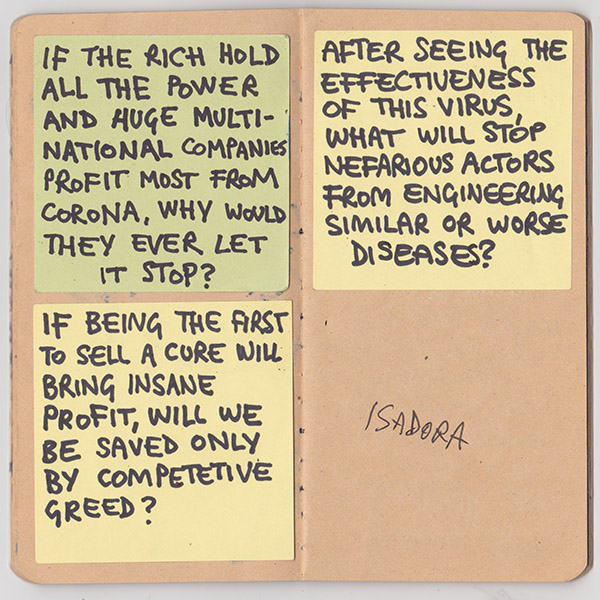 IF THE RICH HOLD
ALL THE POWER
AND HUGE MULTI-
NATIONAL COMPANIES
PROFIT MOST FROM
CORONA, WHY WOULD
THEY EVER LET
IT STOP?
IF BEING THE FIRST
TO SELL A CURE WILL
BRING INSANE
PROFIT, WILL WE
BE SAVED ONLY
BY COMPETETIVE
GREED?
AFTER SEEING THE
EFFECTIVENESS
OF THIS VIRUS,
WHAT WILL STOP
NEFARIOUS ACTORS
FROM ENGINEERING
SIMILAR OR WORSE
DISEASES?
ISADORA